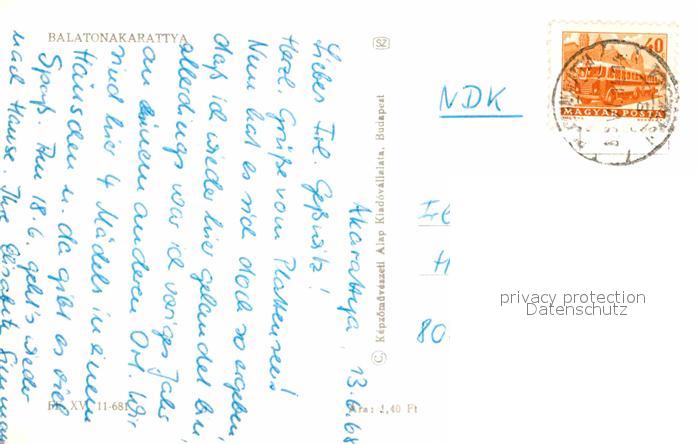 BALATONAKARATTYA
SZ
Akarattya, 13.6.68
Liebes Frl.
Herzl. Grüße vom Plattensee!
Nun hat es sich doch so ergeben,
daß ich wieder hier gelandet bin,
allerdings war ich voriges Jahr
an einem anderen Ort. Wir
sind hier 4 Mädels in einem
Häuschen u. da gibt es viel
Spaß. Am 18.6. geht's wieder
nach Hause. Ihre
© Képzőművészeti Alap Kiadóvállalata, Budapest
XV. 11-681
Ára: 1,40 Ft
NDK
40
MAGYAR POSTA
80
privacy protection
Datenschutz